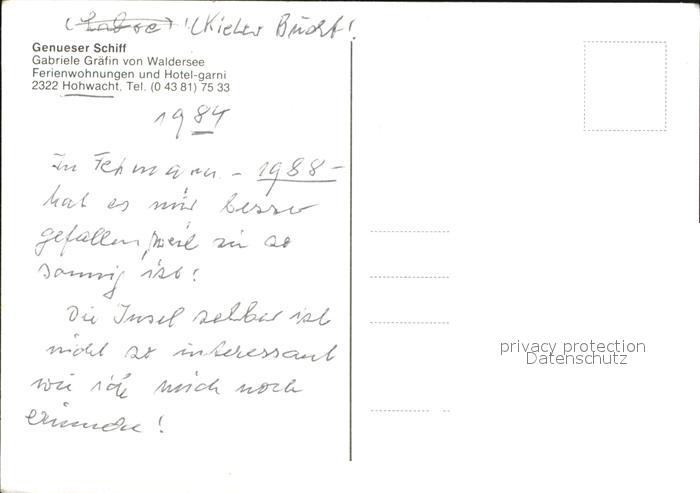 (Kieler Bucht!
Genueser Schiff
Gabriele Gräfin von Waldersee
Ferienwohnungen und Hotel-garni
2322 Hohwacht, Tel. (0 43 81) 75 33
1984
In Fehmarn - 1988 -
hat es mir besser
gefallen, weil so
sonnig ist!
Die Insel selber ist
nicht so interessant
wie ich mich noch
erinnere!
privacy protection
Datenschutz